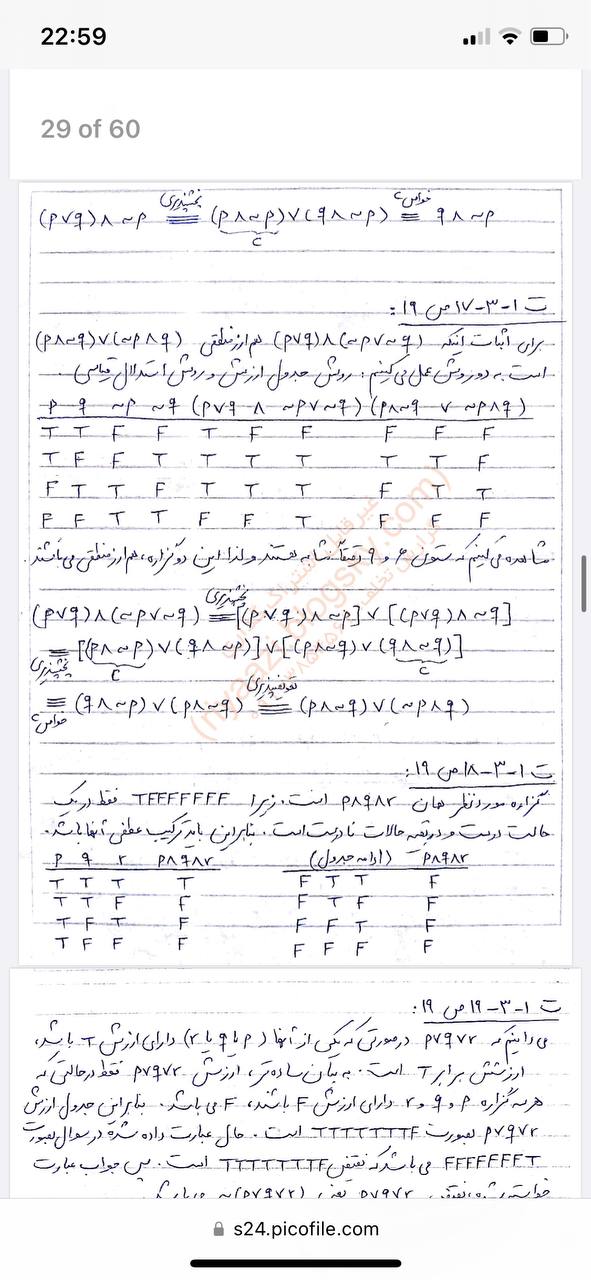 22:59
29 of 60
(p∨q)∧~p ≡ بخشپذیری (p∧~p)∨(q∧~p) ≡ خواص c q∧~p
c
ت ۱-۳-۱۷ ص ۱۹:
برای اثبات اینکه (p∨q)∧(~p∨~q) هم ارز منطقی (p∧~q)∨(~p∧q)
است به دو روش عمل می کنیم: روش جدول ارزش و روش استدلال قیاسی.
p q ~p ~q (p∨q ∧ ~p∨~q) (p∧~q ∨ ~p∧q)
T T F F T F F F F F
T F F T T T T T T F
F T T F T T T F T T
F F T T F F T F F F
مشاهده می کنیم که ستون ۶ و ۹ دقیقاً مشابه هستند و لذا این دو گزاره، هم ارز منطقی می باشند.
(p∨q)∧(~p∨~q) ≡ بخشپذیری [(p∨q)∧~p]∨[(p∨q)∧~q]
≡ بخشپذیری [(p∧~p)∨(q∧~p)]∨[(p∧~q)∨(q∧~q)]
c c
≡ خواص c (q∧~p)∨(p∧~q) ≡ تعویضپذیری (p∧~q)∨(~p∧q)
ت ۱-۳-۱۸ ص ۱۹:
گزاره مورد نظر همان p∧q∧r است. زیرا TFFFFFFF فقط در یک
حالت درست و در بقیه حالات نادرست است. بنابراین باید ترکیب عطفی آنها باشد.
p q r p∧q∧r (ادامه جدول) p∧q∧r
T T T T F T T F
T T F F F T F F
T F T F F F T F
T F F F F F F F
ت ۱-۳-۱۹ ص ۱۹:
می دانیم که p∨q∨r در صورتی که یکی از آنها (p یا q یا r) دارای ارزش T باشد،
ارزشش برابر T است. به بیان ساده تر، ارزش p∨q∨r فقط در حالتی که
هر سه گزاره p و q و r دارای ارزش F باشند، F می باشد. بنابراین جدول ارزش
p∨q∨r بصورت TTTTTTTF است. حال عبارت داده شده در سوال بصورت
FFFFFFFT می باشد که نقیض TTTTTTTF است. پس جواب عبارت
s24.picofile.com